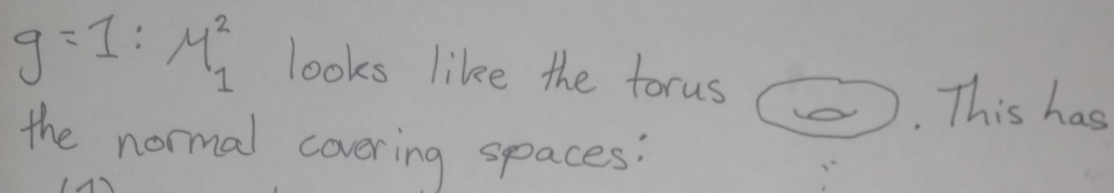 g=1: M₁² looks like the torus . This has
the normal covering spaces:
(1)